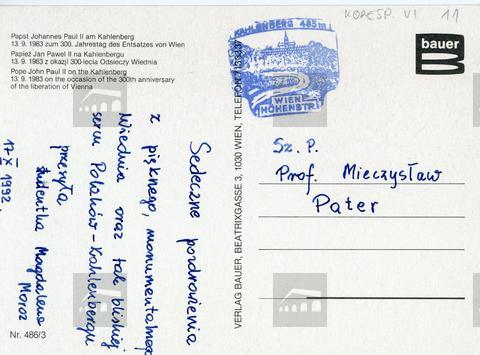 KORESP. VI 11
Papst Johannes Paul II am Kahlenberg
13. 9. 1983 zum 300. Jahrestag des Entsatzes von Wien
Papież Jan Paweł II na Kahlenbergu
13. 9. 1983 z okazji 300-lecia Odsieczy Wiednia
Pope John Paul II on the Kahlenberg
13. 9. 1983 on the occasion of the 300th anniversary
of the liberation of Vienna
KAHLENBERG 483m
WIEN
HÖHENSTR.
bauer
Sedeczne pozdrowienia
z pięknego, monumentalnego
Wiednia oraz tak bliskiej
sercu Polaków - Kahlenbergu
przesyła
studentka Magdalena
Moroz
17-X 1992.
VERLAG BAUER, BEATRIXGASSE 3, 1030 WIEN, TELEFON
Sz. P.
Prof. Mieczysław
Pater
Nr. 486/3